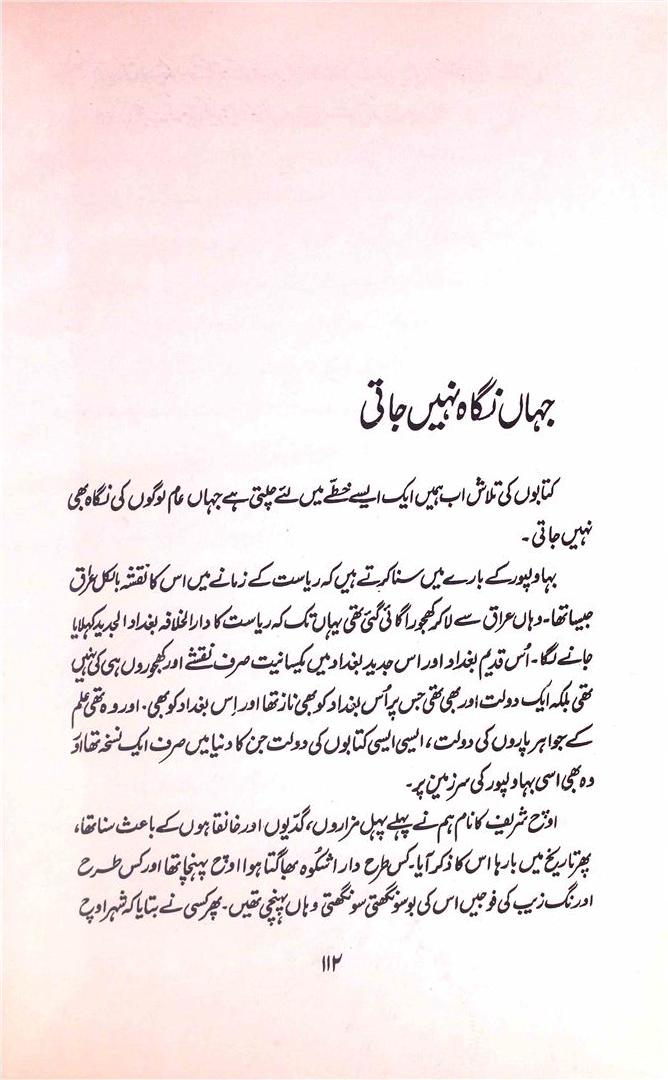 جہاں نگاہ نہیں جاتی
کتابوں کی تلاش اب ہمیں ایک ایسے خطّے میں لئے چلتی ہے جہاں عام لوگوں کی نگاہ بھی
نہیں جاتی ۔
بہاولپور کے بارے میں سنا کرتے ہیں کہ ریاست کے زمانے میں اس کا نقشہ بالکل عراق
جیسا تھا۔ وہاں عراق سے لا کر کھجور اگائی گئی تھی یہاں تک کہ ریاست کا دارالخلافہ بغداد الجدید کہلایا
جانے لگا۔ اُس قدیم بغداد اور اس جدید بغداد میں یکسانیت صرف نقشے اور کھجوروں ہی کی نہیں
تھی بلکہ ایک دولت اور بھی تھی جس پر اُس بغداد کو بھی ناز تھا اور اِس بغداد کو بھی۔ اور وہ تھی علم
کے جواہر پاروں کی دولت ، ایسی ایسی کتابوں کی دولت جن کا دنیا میں صرف ایک نسخہ تھا اور
وہ بھی اسی بہاولپور کی سرزمین پر۔
اوچ شریف کا نام ہم نے پہلے پہل مزاروں، گدّیوں اور خانقاہوں کے باعث سنا تھا،
پھر تاریخ میں بارہا اس کا ذکر آیا۔ کس طرح دارا شکوہ بھاگتا ہوا اوچ پہنچا تھا اور کس طرح
اورنگ زیب کی فوجیں اس کی بو سونگھتی سونگھتی وہاں پہنچی تھیں۔ پھر کسی نے بتایا کہ شہر اوچ
۱۱۲